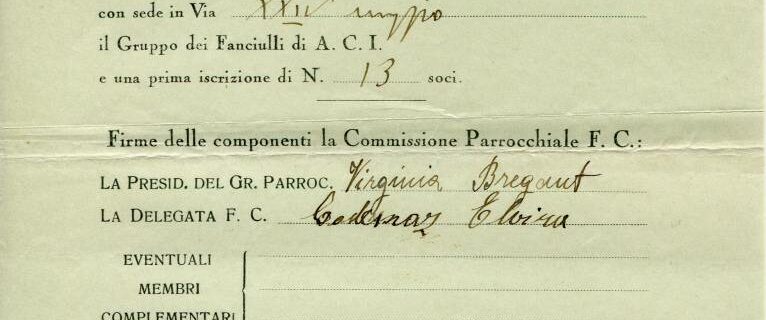 con sede in Via XXIV maggio
il Gruppo dei Fanciulli di A. C. I.
e una prima iscrizione di N. 13 soci.
Firme delle componenti la Commissione Parrocchiale F. C.:
LA PRESID. DEL GR. PARROC. Virginia Bregant
LA DELEGATA F. C. Elvira
EVENTUALI
MEMBRI
COMPLEMENTARI